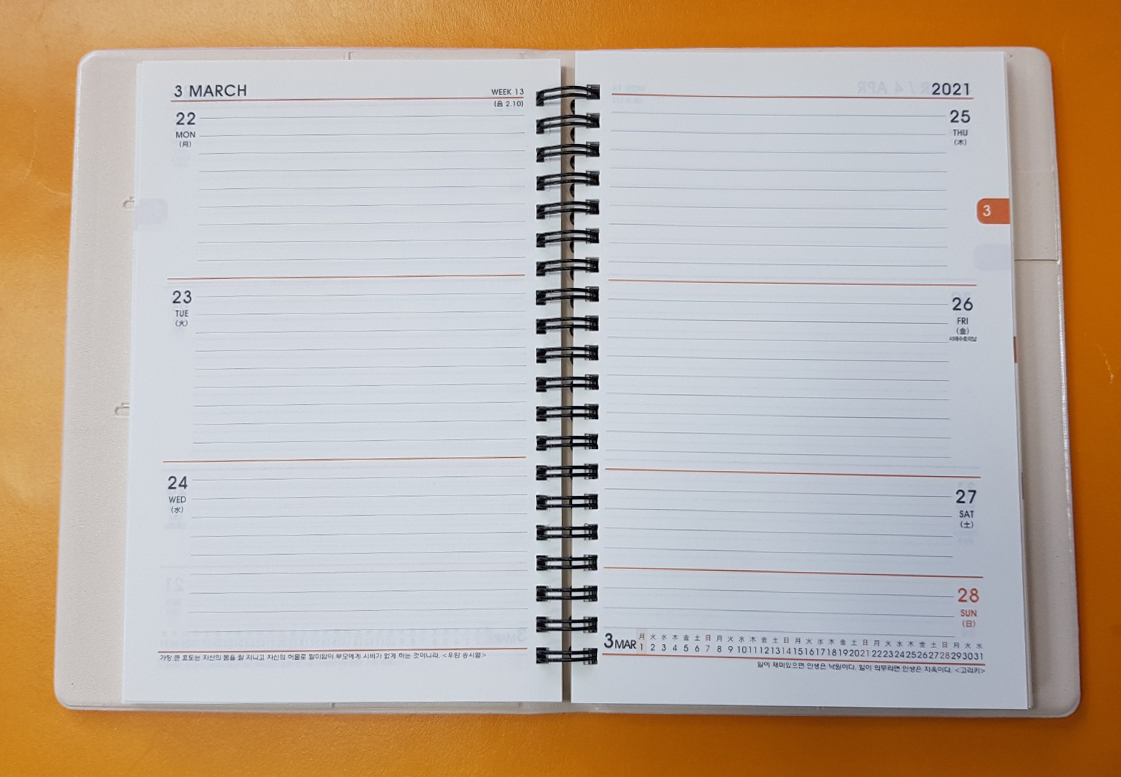 3 MARCH
WEEK 13
(음 2.10)
22
MON
(月)
23
TUE
(火)
24
WED
(水)
가장 큰 효도는 자신의 몸을 잘 지니고 자신의 허물로 말미암아 부모에게 시비가 없게 하는 것이니라. <우암 송시열>
2021
25
THU
(木)
3
26
FRI
(金)
서해수호의날
27
SAT
(土)
28
SUN
(日)
3 MAR
月 火 水 木 金 土 日 月 火 水 木 金 土 日 月 火 水 木 金 土 日 月 火 水 木 金 土 日 月 火 水
1 2 3 4 5 6 7 8 9 10 11 12 13 14 15 16 17 18 19 20 21 22 23 24 25 26 27 28 29 30 31
일이 재미있으면 인생은 낙원이다. 일이 의무라면 인생은 지옥이다. <고리키>